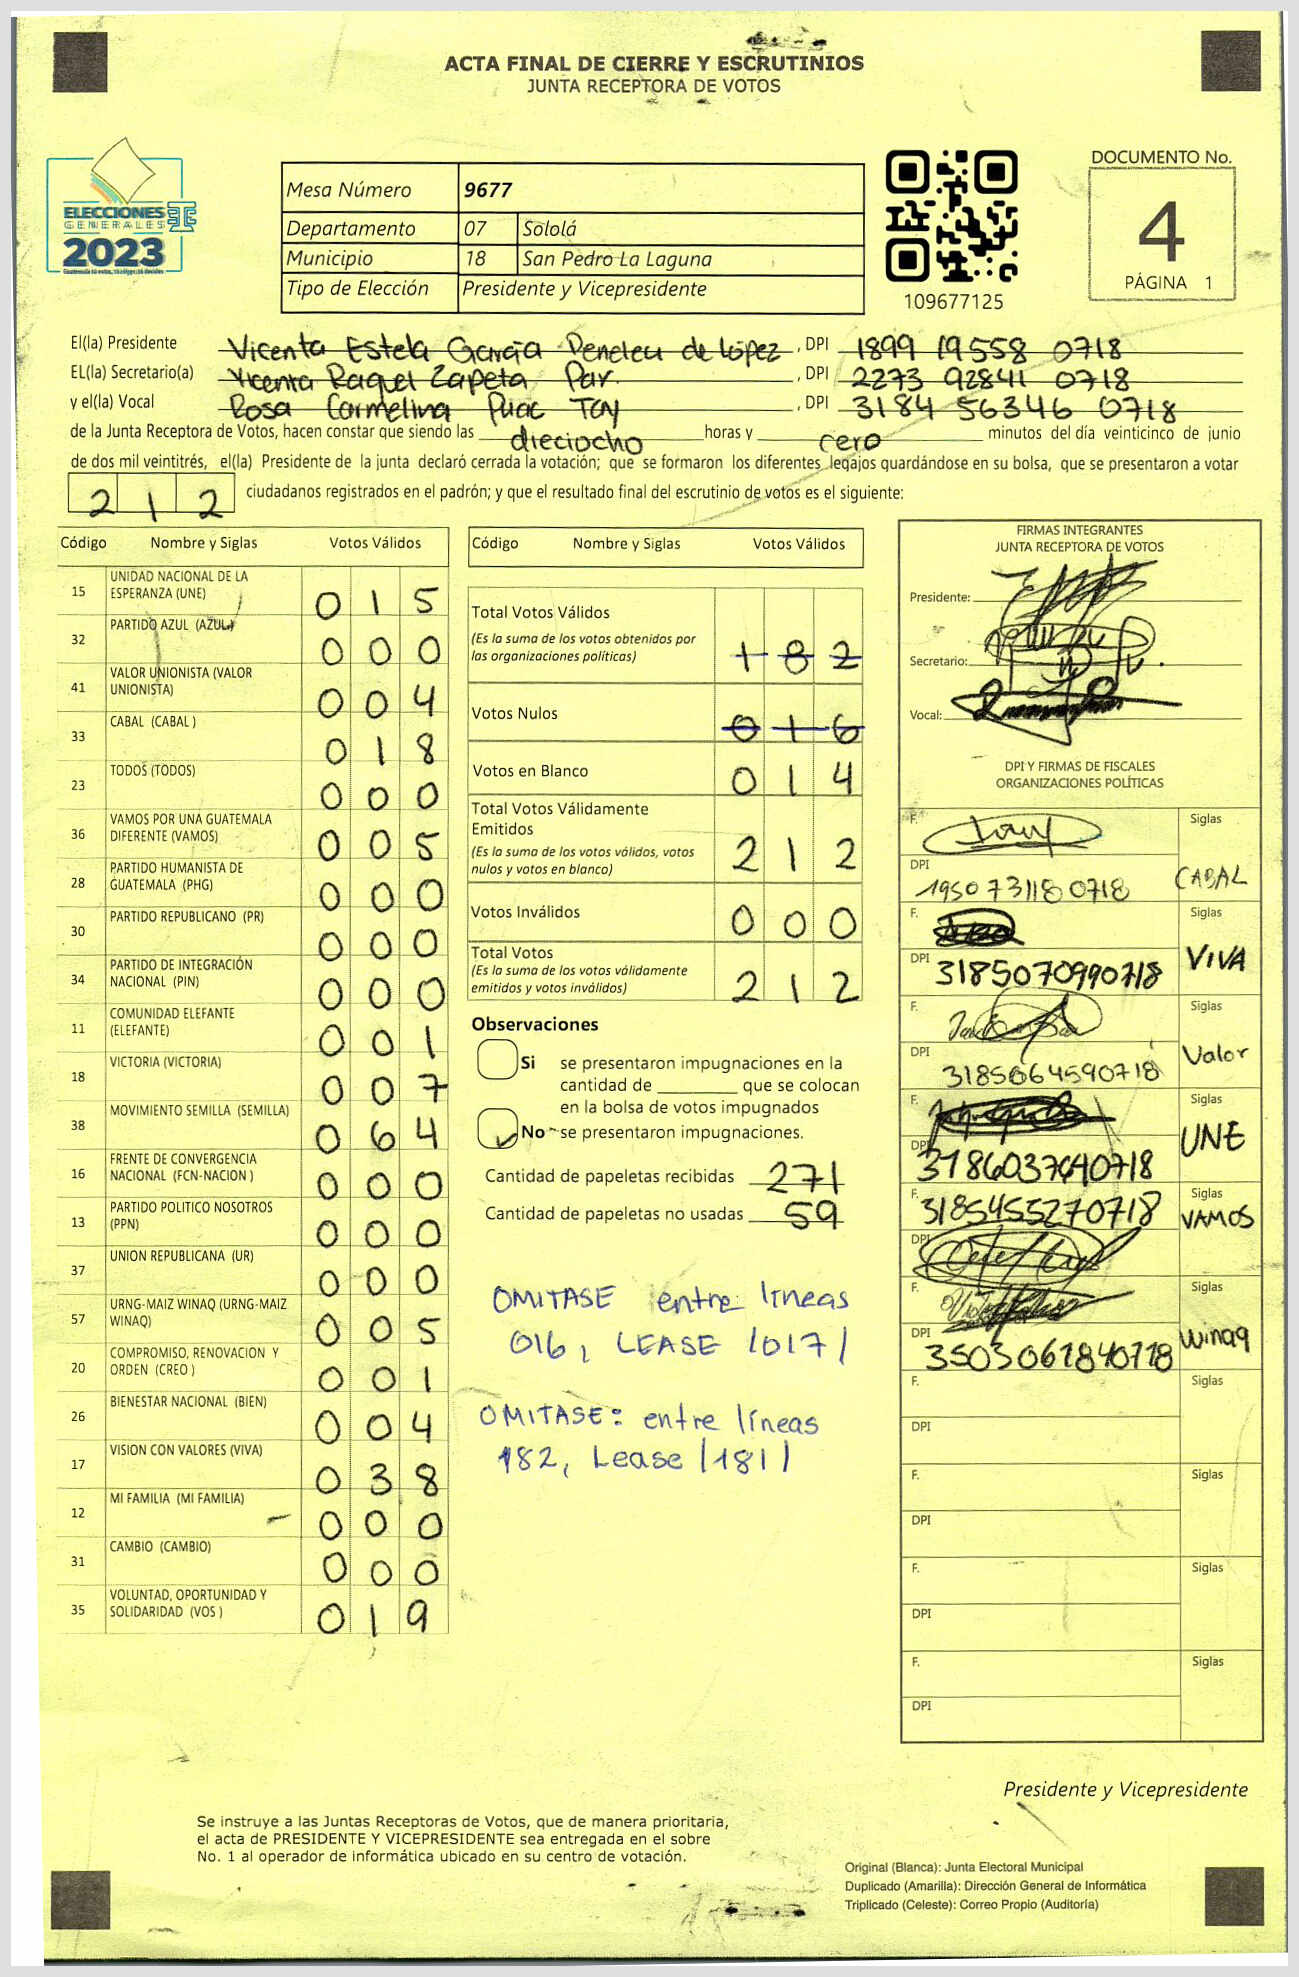 ACTA FINAL DE CIERRE Y ESCRUTINIOS
JUNTA RECEPTORA DE VOTOS
ELECCIONES
GENERALES
2023
Mesa Número 9677
Departamento 07 Sololá
Municipio 18 San Pedro La Laguna
Tipo de Elección Presidente y Vicepresidente
109677125
DOCUMENTO No.
4
PÁGINA 1
El(la) Presidente Vicenta Estela García Peneleu de López, DPI 1899 19558 0718
EL(la) Secretario(a) Vicenta Raquel Zapeta Par., DPI 2273 92841 0718
y el(la) Vocal Rosa Carmelina Puac Tay, DPI 3184 56346 0718
de la Junta Receptora de Votos, hacen constar que siendo las dieciocho horas y cero minutos del día veinticinco de junio
de dos mil veintitrés, el(la) Presidente de la junta declaró cerrada la votación; que se formaron los diferentes legajos guardándose en su bolsa, que se presentaron a votar
212 ciudadanos registrados en el padrón; y que el resultado final del escrutinio de votos es el siguiente:
Código Nombre y Siglas Votos Válidos
15 UNIDAD NACIONAL DE LA ESPERANZA (UNE) 015
32 PARTIDO AZUL (AZUL) 000
41 VALOR UNIONISTA (VALOR UNIONISTA) 004
33 CABAL (CABAL ) 018
23 TODOS (TODOS) 000
36 VAMOS POR UNA GUATEMALA DIFERENTE (VAMOS) 005
28 PARTIDO HUMANISTA DE GUATEMALA (PHG) 000
30 PARTIDO REPUBLICANO (PR) 000
34 PARTIDO DE INTEGRACIÓN NACIONAL (PIN) 000
11 COMUNIDAD ELEFANTE (ELEFANTE) 001
18 VICTORIA (VICTORIA) 007
38 MOVIMIENTO SEMILLA (SEMILLA) 064
16 FRENTE DE CONVERGENCIA NACIONAL (FCN-NACION ) 000
13 PARTIDO POLITICO NOSOTROS (PPN) 000
37 UNION REPUBLICANA (UR) 000
57 URNG-MAIZ WINAQ (URNG-MAIZ WINAQ) 005
20 COMPROMISO, RENOVACION Y ORDEN (CREO ) 001
26 BIENESTAR NACIONAL (BIEN) 004
17 VISION CON VALORES (VIVA) 038
12 MI FAMILIA (MI FAMILIA) 000
31 CAMBIO (CAMBIO) 000
35 VOLUNTAD, OPORTUNIDAD Y SOLIDARIDAD (VOS ) 019
Código Nombre y Siglas Votos Válidos
Total Votos Válidos
(Es la suma de los votos obtenidos por
las organizaciones políticas) 182
Votos Nulos 016
Votos en Blanco 014
Total Votos Válidamente
Emitidos
(Es la suma de los votos válidos, votos
nulos y votos en blanco) 212
Votos Inválidos 000
Total Votos
(Es la suma de los votos válidamente
emitidos y votos inválidos) 212
Observaciones
Si se presentaron impugnaciones en la
cantidad de ________ que se colocan
en la bolsa de votos impugnados
No se presentaron impugnaciones.
Cantidad de papeletas recibidas 271
Cantidad de papeletas no usadas 59
OMITASE entre líneas
016, LEASE /017/
OMITASE: entre líneas
182, Lease /181/
FIRMAS INTEGRANTES
JUNTA RECEPTORA DE VOTOS
Presidente:
Secretario:
Vocal:
DPI Y FIRMAS DE FISCALES
ORGANIZACIONES POLÍTICAS
F. Siglas
DPI 1950 73118 0718 CABAL
F. Siglas
DPI 3185070990718 VIVA
F. Siglas
DPI 3185064590718 Valor
F. Siglas
DPI 3186037640718 UNE
F. 3185455270718 Siglas
DPI VAMOS
F. Siglas
DPI 3503061840718 Winaq
F. Siglas
DPI
F. Siglas
DPI
F. Siglas
DPI
F. Siglas
DPI
Presidente y Vicepresidente
Se instruye a las Juntas Receptoras de Votos, que de manera prioritaria,
el acta de PRESIDENTE Y VICEPRESIDENTE sea entregada en el sobre
No. 1 al operador de informática ubicado en su centro de votación.
Original (Blanca): Junta Electoral Municipal
Duplicado (Amarilla): Dirección General de Informática
Triplicado (Celeste): Correo Propio (Auditoría)